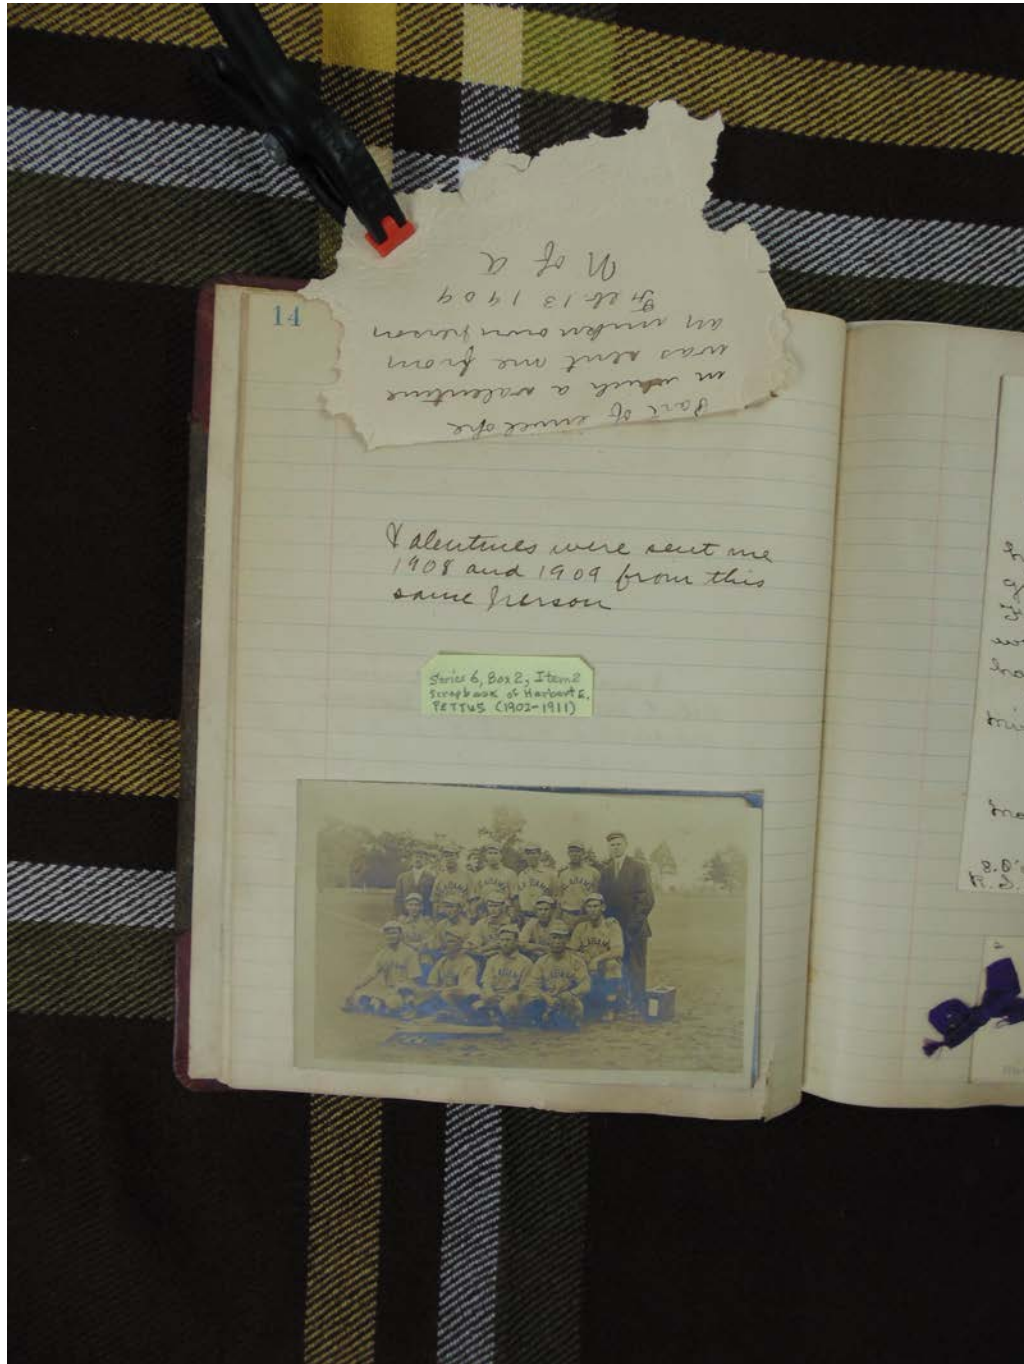 14
Part of envelope
in which a valentine
was sent me from
an unknown person
Feb 13 1909
U of A
Valentines were sent me
1908 and 1909 from this
same person
Series 6, Box 2, Item 2
Scrapbook of Herbert E.
PETTUS (1902-1911)
ALABAMA